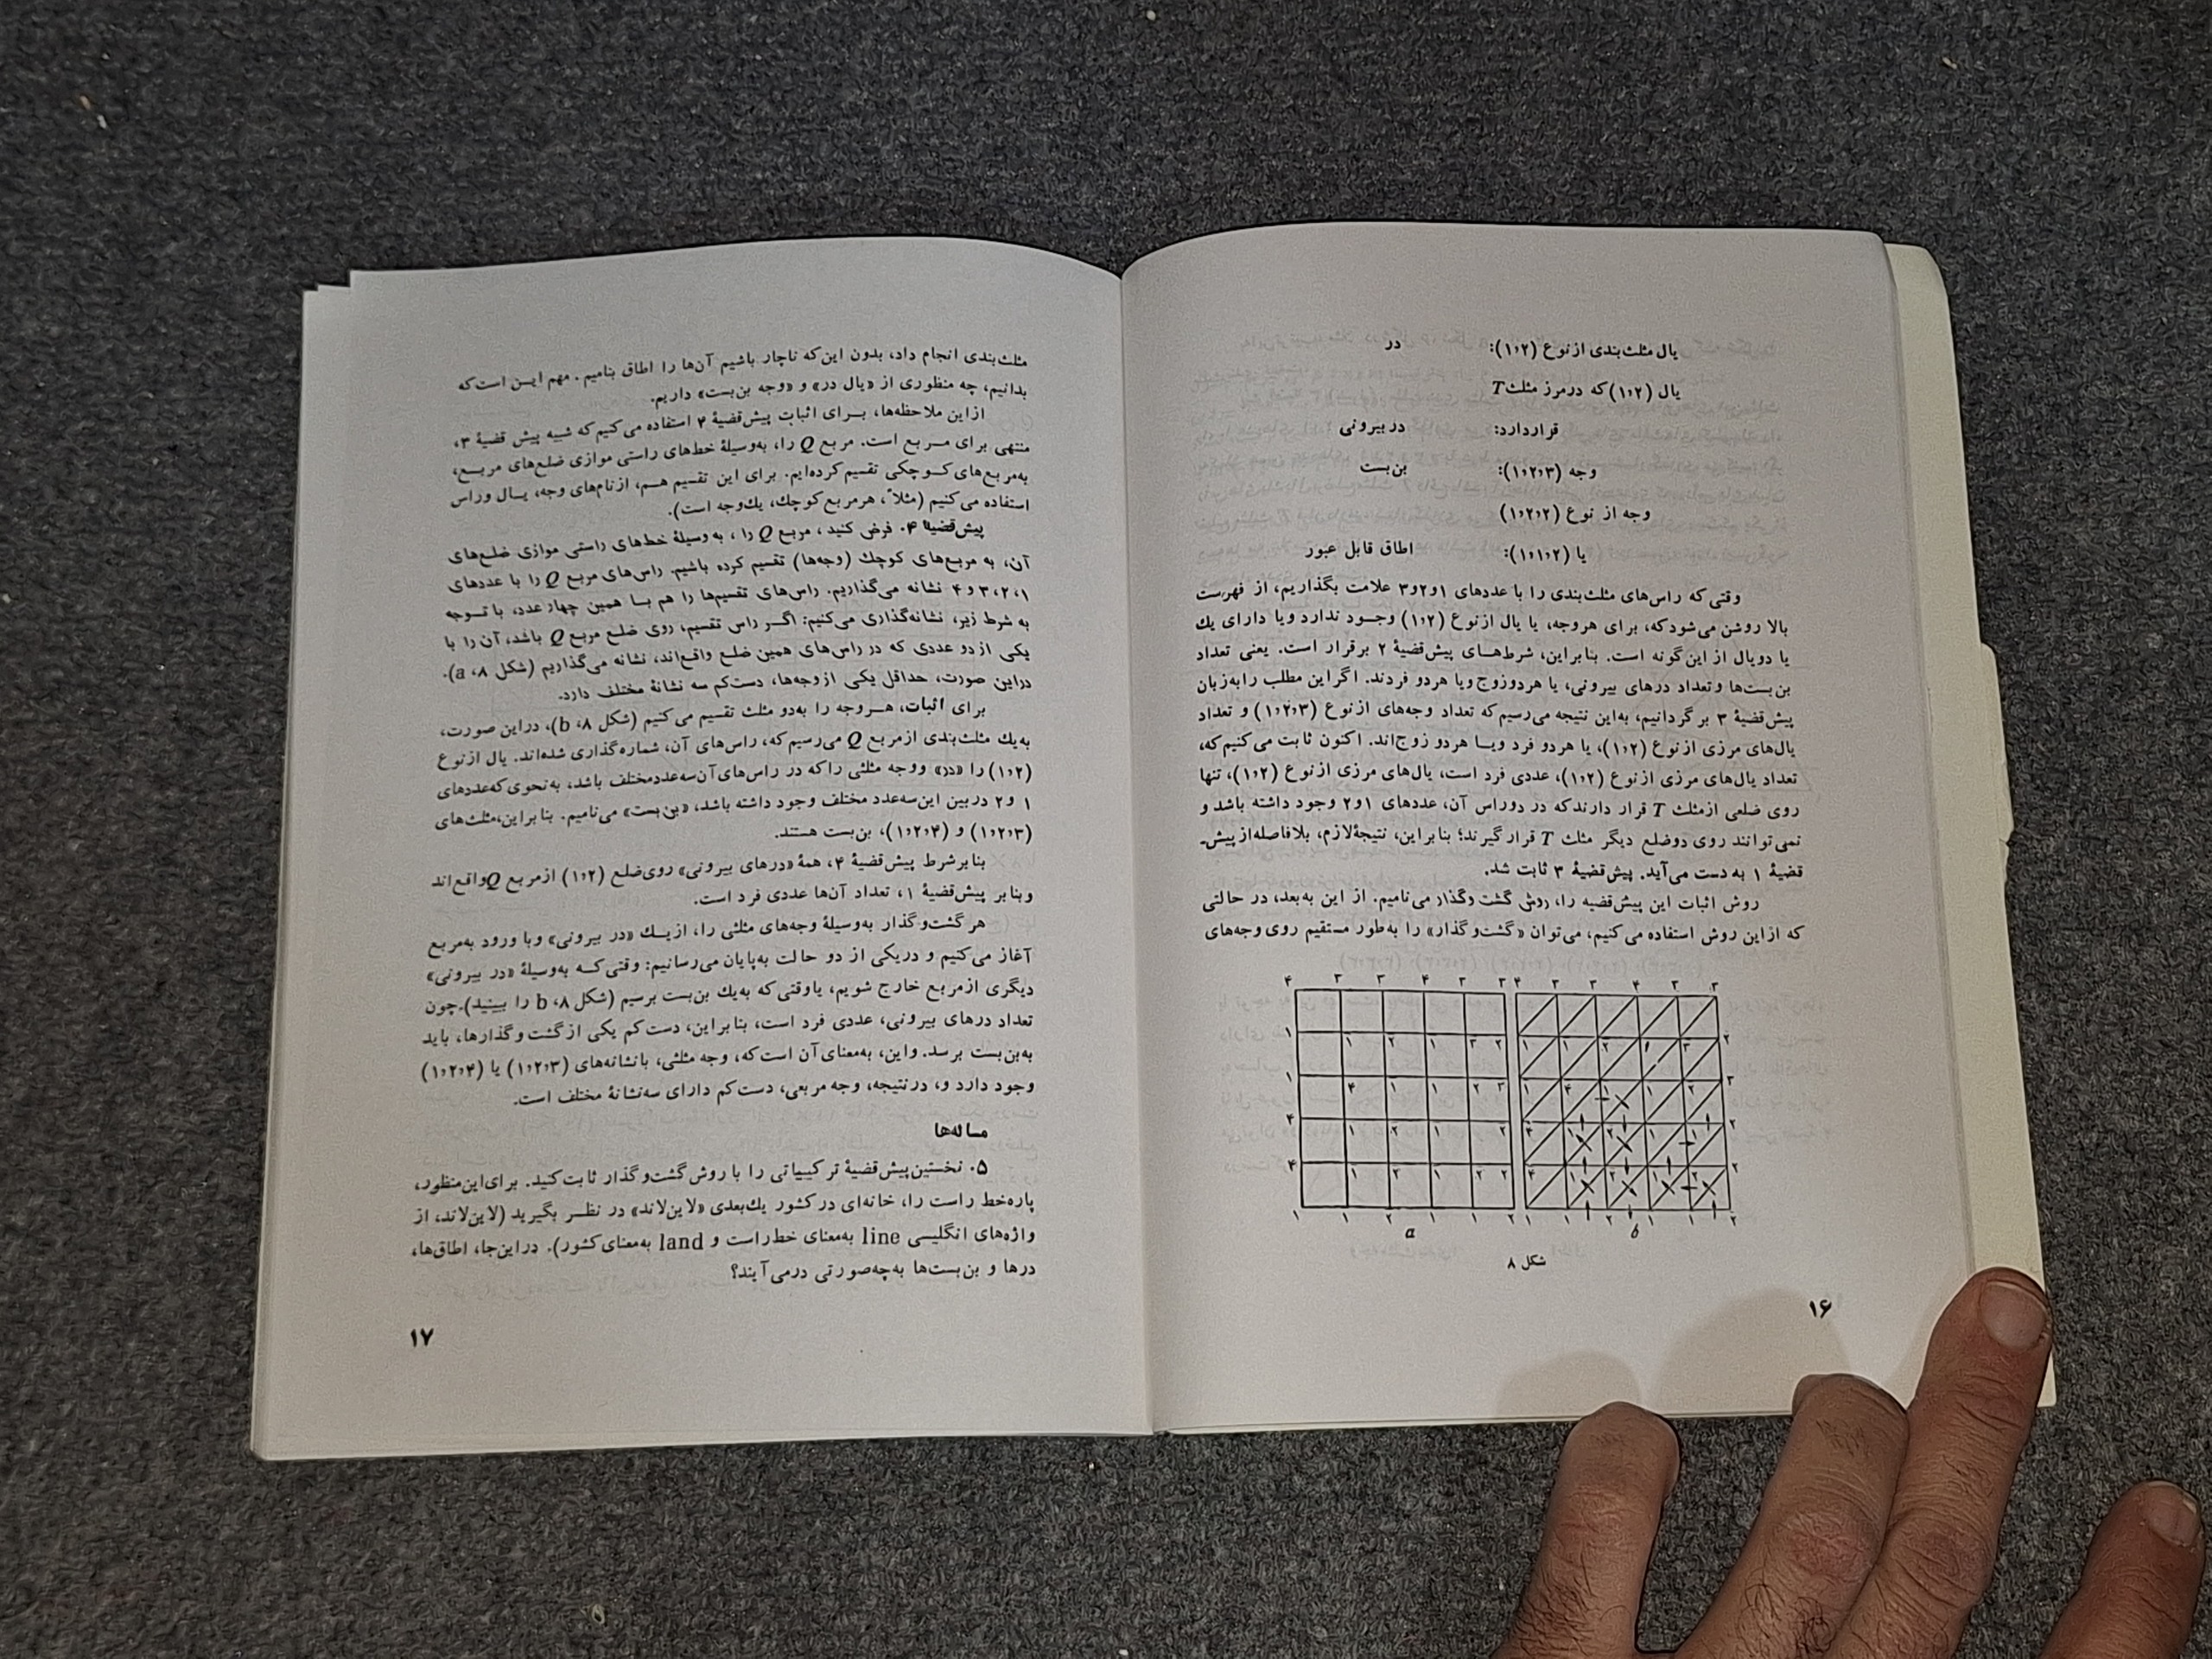 یال مثلث‌بندی از نوع (۱،۲): در
یال (۱،۲) که در مرز مثلث T
قرار دارد: در بیرونی
وجه (۱،۲،۳): بن‌بست
وجه از نوع (۱،۲،۲)
یا (۱،۱،۲): اطاق قابل عبور
وقتی که راس‌های مثلث‌بندی را با عددهای ۱و۲و۳ علامت بگذاریم، از فهرست
بالا روشن می‌شود که، برای هر وجه، یا یال از نوع (۱،۲) وجود ندارد ویا دارای یك
یا دو یال از این گونه است. بنابراین، شرط‌های پیش‌قضیهٔ ۲ برقرار است. یعنی تعداد
بن‌بست‌ها و تعداد درهای بیرونی، یا هر دو زوج ویا هر دو فردند. اگر این مطلب را به‌زبان
پیش‌قضیهٔ ۳ برگردانیم، به‌این نتیجه می‌رسیم که تعداد وجه‌های از نوع (۱،۲،۳) و تعداد
یال‌های مرزی از نوع (۱،۲)، یا هر دو فرد ویا هر دو زوج‌اند. اکنون ثابت می‌کنیم که،
تعداد یال‌های مرزی از نوع (۱،۲)، عددی فرد است، یال‌های مرزی از نوع (۱،۲)، تنها
روی ضلعی از مثلث T قرار دارند که در دو راس آن، عددهای ۱و۲ وجود داشته باشد و
نمی‌توانند روی دو ضلع دیگر مثلث T قرار گیرند؛ بنابراین، نتیجهٔ لازم، بلافاصله از پیش‌ـ
قضیهٔ ۱ به دست می‌آید. پیش‌قضیهٔ ۳ ثابت شد.
روش اثبات این پیش‌قضیه را، روش گشت و گذار می‌نامیم. از این به‌بعد، در حالتی
که از این روش استفاده می‌کنیم، می‌توان «گشت و گذار» را به‌طور مستقیم روی وجه‌های
۴ ۳ ۳ ۴ ۳ ۳ ۴ ۳ ۳ ۴ ۳ ۳
۱ ۱ ۲ ۱ ۳ ۲ ۱ ۱ ۲ ۱ ۳ ۲
۱ ۴ ۱ ۱ ۲ ۳ ۱ ۴ ۱ ۱ ۲ ۳
۴ ۱ ۲ ۱ ۱ ۲ ۴ ۱ ۲ ۱ ۱ ۲
۴ ۱ ۲ ۱ ۲ ۲ ۴ ۱ ۲ ۱ ۲ ۲
۱ ۱ ۲ ۱ ۱ ۲ ۱ ۱ ۲ ۱ ۱ ۲
a b
شکل ۸
۱۶
مثلث‌بندی انجام داد، بدون این‌که ناچار باشیم آن‌ها را اطاق بنامیم. مهم ایـن است که
بدانیم، چه منظوری از «یال در» و «وجه بن‌بست» داریم.
از این ملاحظه‌ها، بـرای اثبات پیش‌قضیهٔ ۴ استفاده می‌کنیم که شبیه پیش قضیهٔ ۳،
منتهی برای مـربع است. مربع Q را، به‌وسیلهٔ خط‌های راستی موازی ضلع‌های مربـع،
به‌مربع‌های کـوچکی تقسیم کرده‌ایم. برای این تقسیم هـم، از نام‌های وجه، یـال و راس
استفاده می‌کنیم (مثلاً، هر مربع کوچك، یك وجه است).
پیش‌قضیهٔ ۴. فرض کنید، مربع Q را، به وسیلهٔ خط‌های راستی موازی ضلع‌های
آن، به مربع‌های کوچك (وجه‌ها) تقسیم کرده باشیم. راس‌های مربع Q را با عددهای
۱، ۲، ۳ و ۴ نشانه می‌گذاریم. راس‌های تقسیم‌ها را هم بـا همین چهار عدد، با تـوجه
به شرط زیر، نشانه‌گذاری می‌کنیم: اگـر راس تقسیم، روی ضلع مربع Q باشد، آن را با
یکی از دو عددی که در راس‌های همین ضلع واقع‌اند، نشانه می‌گذاریم (شکل ۸، a).
در این صورت، حداقل یکی از وجه‌ها، دست‌کم سه نشانهٔ مختلف دارد.
برای اثبات، هـر وجه را به‌دو مثلث تقسیم می‌کنیم (شکل ۸، b)، در این صورت،
به‌یك مثلث‌بندی از مربع Q می‌رسیم که، راس‌های آن، شماره‌گذاری شده‌اند. یال از نوع
(۱،۲) را «در» و وجه مثلثی را که در راس‌های آن سه‌عدد مختلف باشد، به‌نحوی که عددهای
۱ و ۲ در بین این سه‌عدد مختلف وجود داشته باشد، «بن‌بست» می‌نامیم. بنابراین، مثلث‌های
(۱،۲،۳) و (۱،۲،۴)، بن‌بست هستند.
بنابر شرط پیش‌قضیهٔ ۴، همهٔ «درهای بیرونی» روی ضلع (۱،۲) از مربع Q واقع‌اند
و بنابر پیش‌قضیهٔ ۱، تعداد آن‌ها عددی فرد است.
هر گشت و گذار به‌وسیلهٔ وجه‌های مثلثی را، از یـك «در بیرونی» و با ورود به‌مربع
آغاز می‌کنیم و در یکی از دو حالت به‌پایان می‌رسانیم: وقتی کـه به‌وسیلهٔ «در بیرونی»
دیگری از مربع خارج شویم، یا وقتی که به‌یك بن‌بست برسیم (شکل ۸، b را ببینید). چون
تعداد درهای بیرونی، عددی فرد است، بنابراین، دست‌کم یکی از گشت و گذارها، باید
به‌بن‌بست برسد. واین، به‌معنای آن است که، وجه مثلثی، با نشانه‌های (۱،۲،۳) یا (۱،۲،۴)
وجود دارد و، در نتیجه، وجه مربعی، دست‌کم دارای سه‌نشانهٔ مختلف است.
مساله‌ها
۵. نخستین پیش‌قضیهٔ ترکیبیاتی را با روش گشت و گذار ثابت کنید. برای این منظور،
پاره‌خط راست را، خانه‌ای در کشور یك‌بعدی «لاین‌لاند» در نظـر بگیرید (لاین‌لاند، از
واژه‌های انگلیسی line به‌معنای خط راست و land به‌معنای کشور). در این‌جا، اطاق‌ها،
درها و بن‌بست‌ها به‌چه صورتی درمی‌آیند؟
۱۷